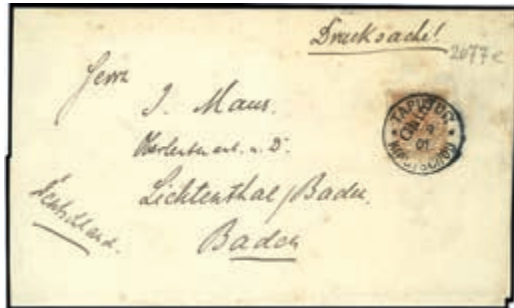 Drucksache!
2077c
Herrn
J. Maus.
Oberleutnant. a. D.
Lichtenthal/Baden.
Baden
Deutschland.
TAPUTUR
9
01
KIAUTSCHOU